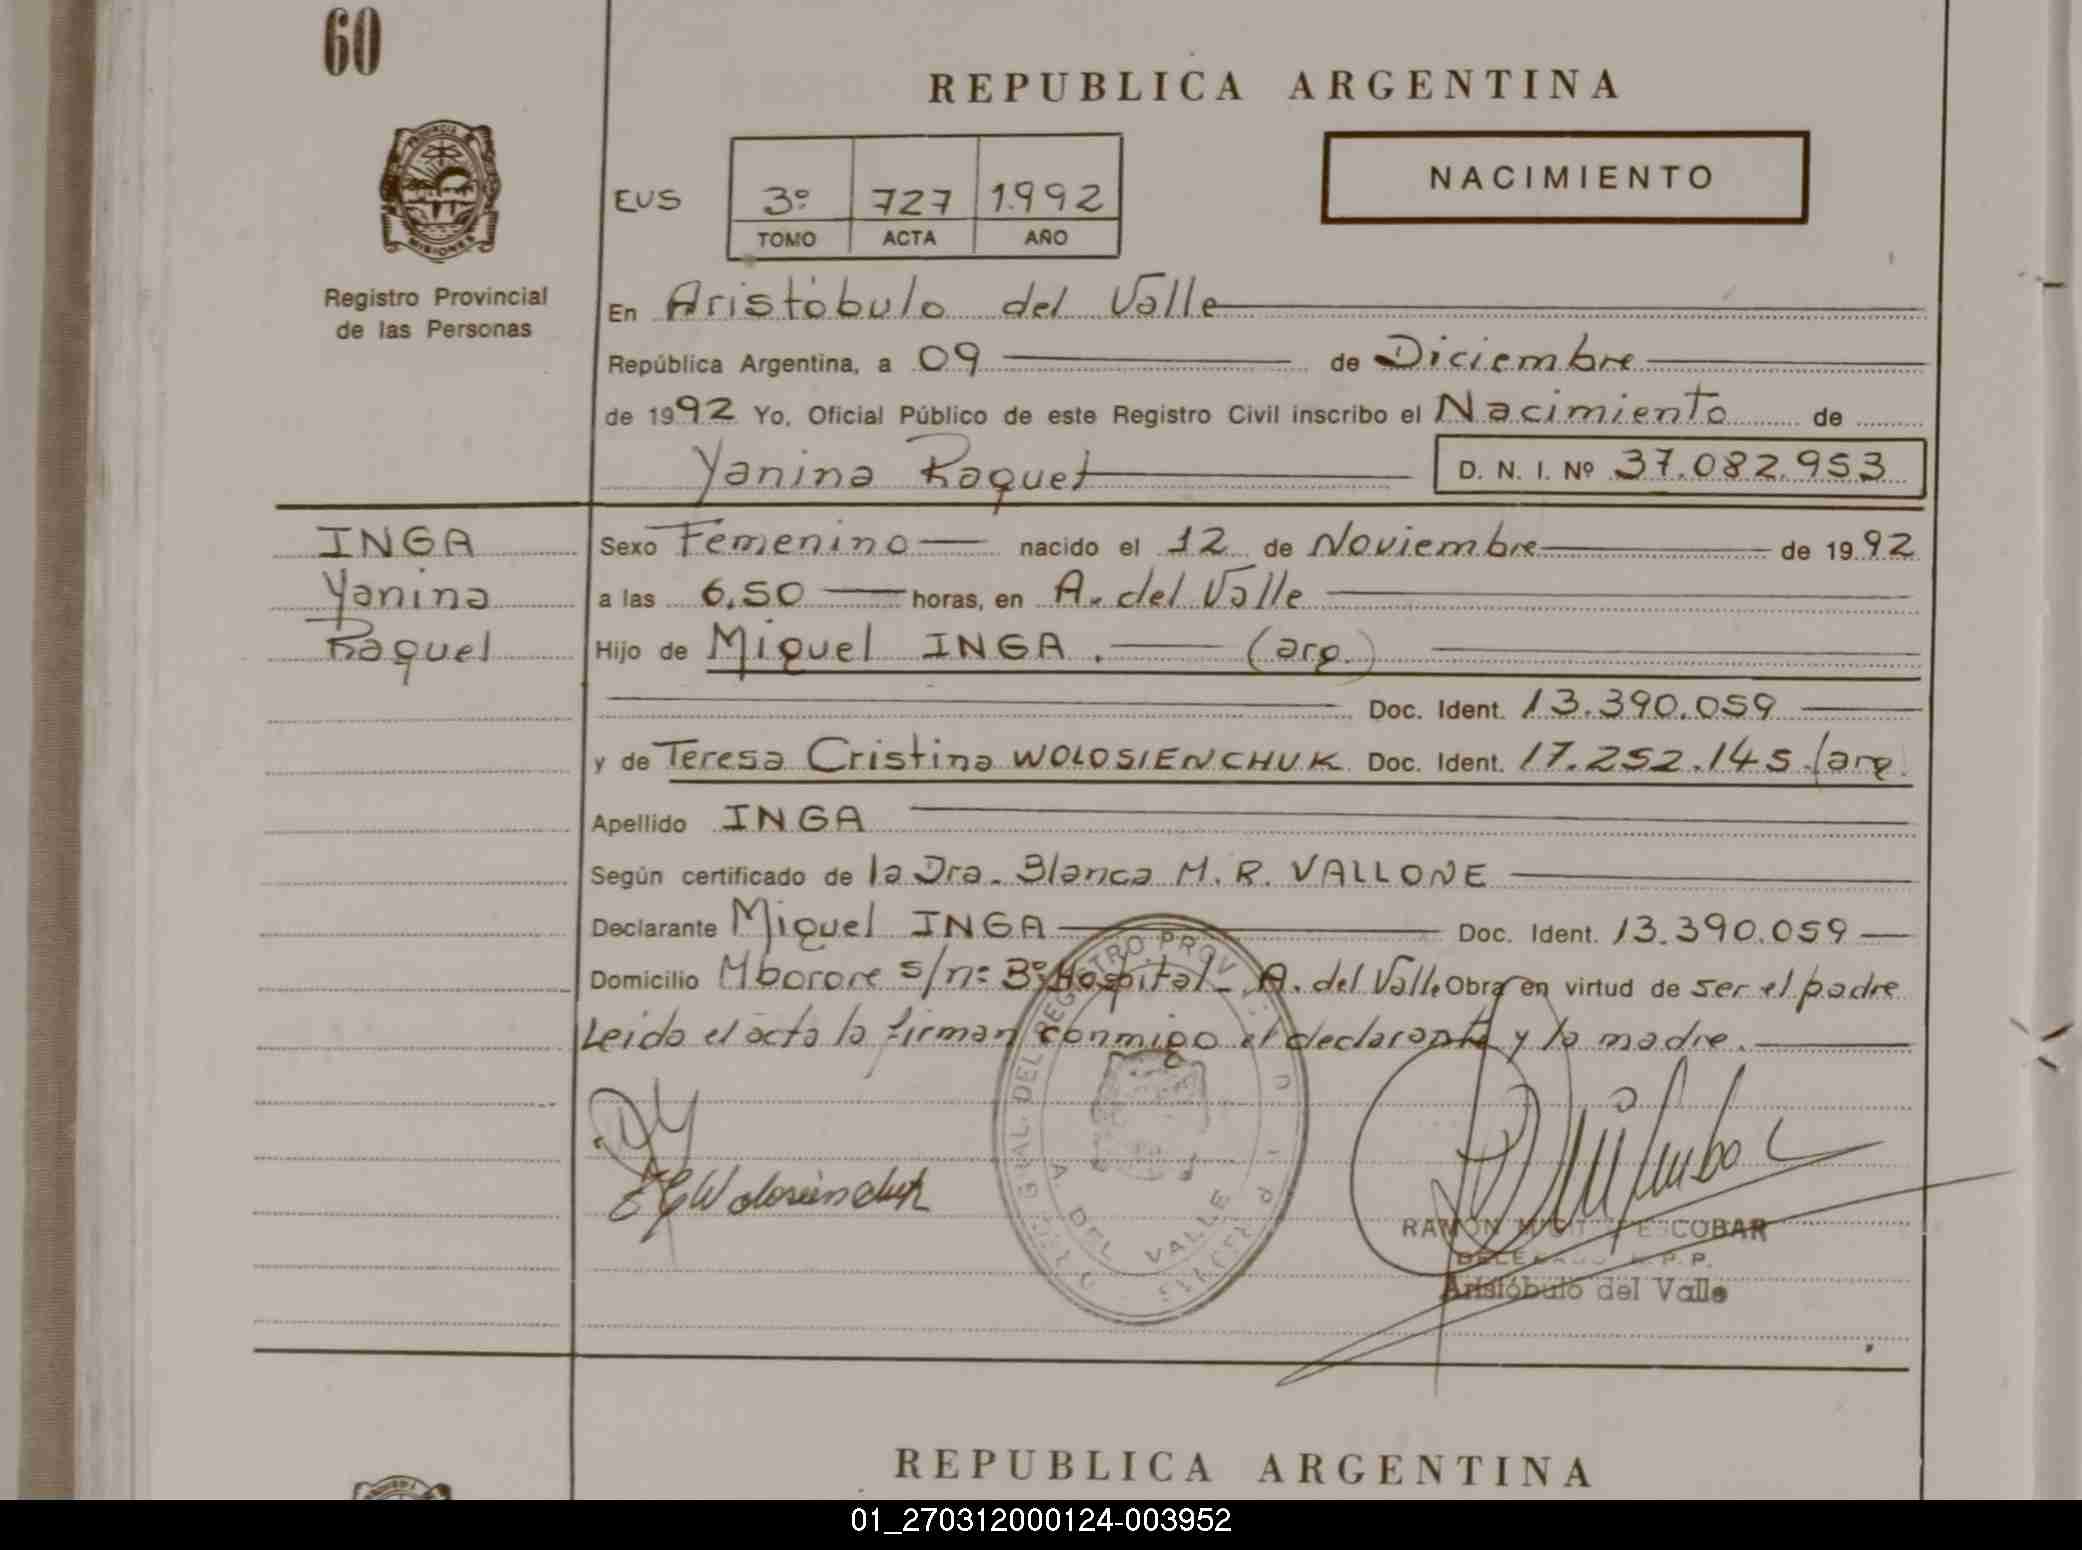 60
REPUBLICA ARGENTINA
PROVINCIA DE
MISIONES
Registro Provincial
de las Personas
NACIMIENTO
EUS 3º 727 1.992
TOMO ACTA AÑO
En Aristóbulo del Valle
República Argentina, a 09 de Diciembre
de 1992 Yo, Oficial Público de este Registro Civil inscribo el Nacimiento de
Yanina Raquel D. N. I. Nº 37.082.953
INGA
Yanina
Raquel
Sexo Femenino nacido el 12 de Noviembre de 1992
a las 6,50 horas, en A. del Valle
Hijo de Miguel INGA. (arg.)
Doc. Ident. 13.390.059
y de Teresa Cristina WOLOSIENCHUK Doc. Ident. 17.252.145.(arg.
Apellido INGA
Según certificado de la Dra. Blanca M. R. VALLONE
Declarante Miguel INGA Doc. Ident. 13.390.059
Domicilio Mborore s/nº Bº Hospital - A. del Valle Obra en virtud de ser el padre
Leida el acta la firman conmigo el declarante y la madre.
A. DEL VALLE
RAMON ESCOBAR
R. P. P.
Aristóbulo del Valle
REPUBLICA ARGENTINA
01_270312000124-003952